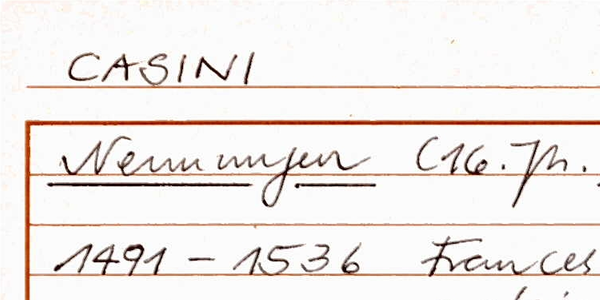 CASINI
Nennungen (16. Jh.
1491 - 1536 Frances